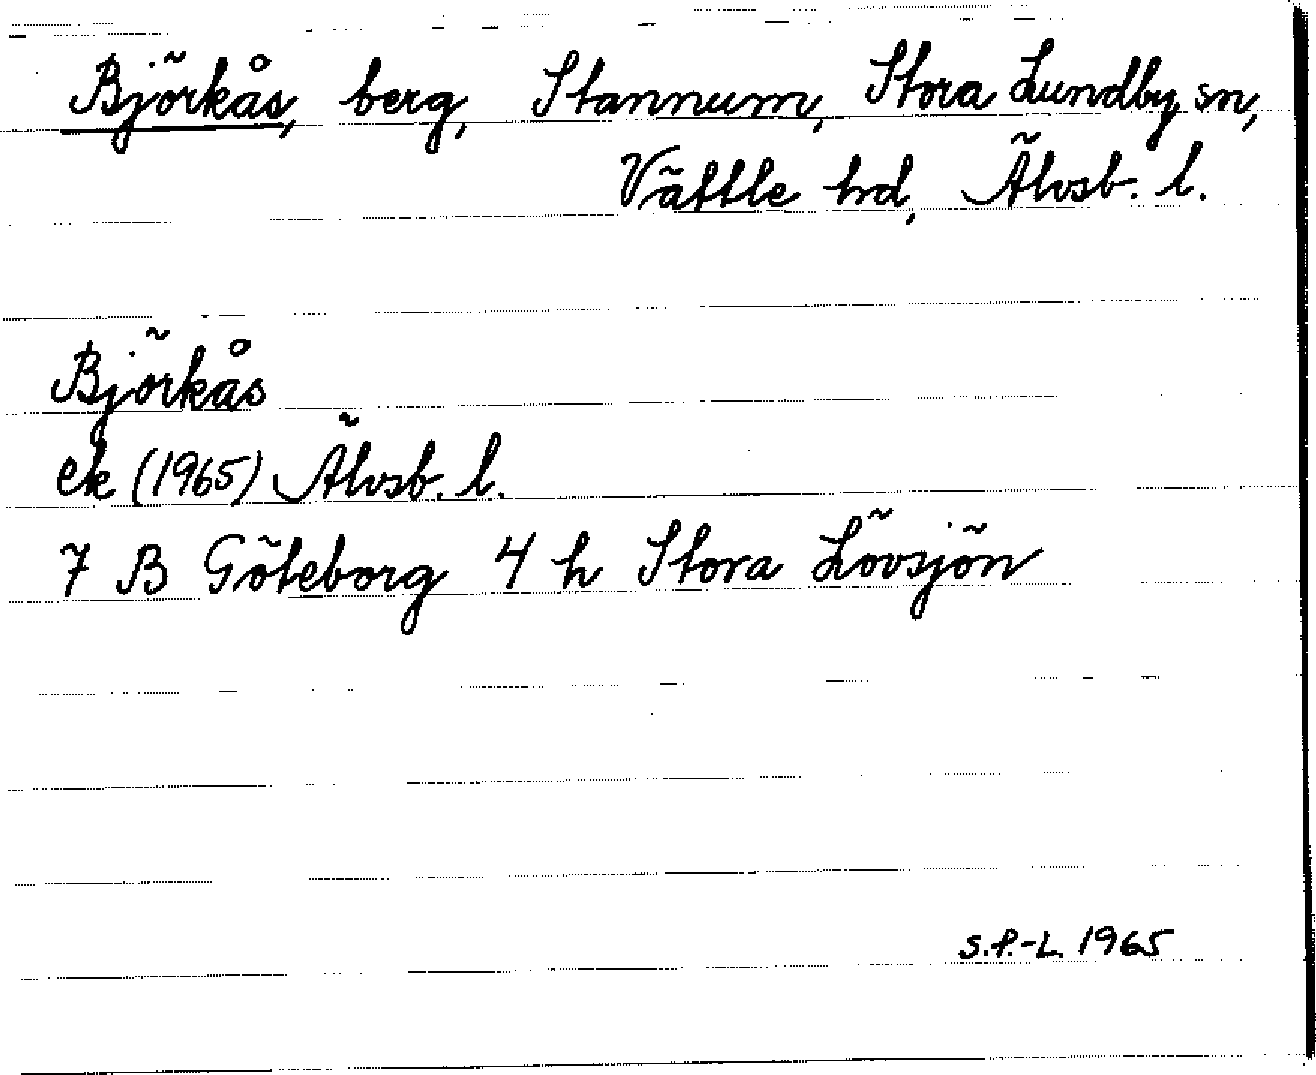 Björkås, berg, Stannum, Stora Lundby sn,
Vättle hd, Älvsb. l.
Björkås
ek (1965) Älvsb. l.
7 B Göteborg 4 h Stora Lövsjön
S.P.-L. 1965